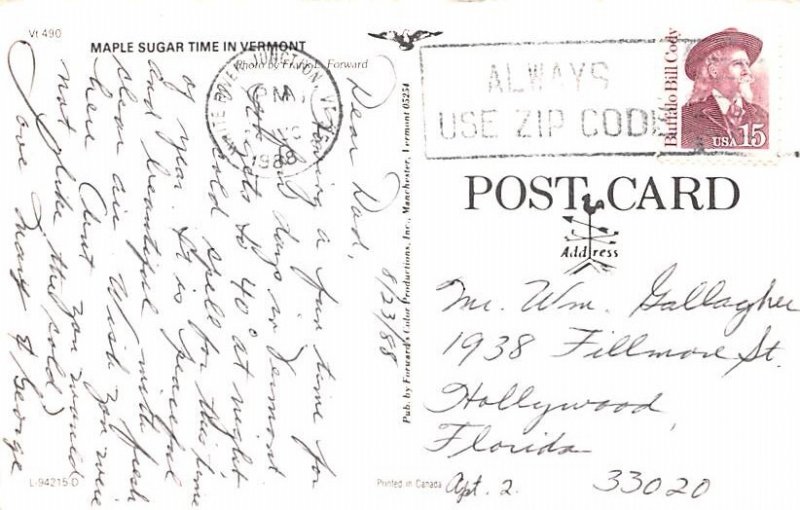 Vt 490
MAPLE SUGAR TIME IN VERMONT
Photo by Frank L. Forward
Dear Dad, 8/23/88
Having a fun time for
a few days in Vermont
It gets to 40° at night
cold spell for this time
of year. It is peaceful
and beautiful with fresh
clear air. Wish you were
here (but you would
not like the cold.)
Love Mary & George
L-94215-D
Pub. by Forward's Color Productions, Inc., Manchester, Vermont 05254
Printed in Canada
WHITE RIVER JUNCTION, VT
PM
1988
ALWAYS
USE ZIP CODE
Buffalo Bill Cody
USA 15
POST CARD
Address
Mr. Wm. Gallagher
1938 Fillmore St.
Hollywood,
Florida
Apt. 2. 33020